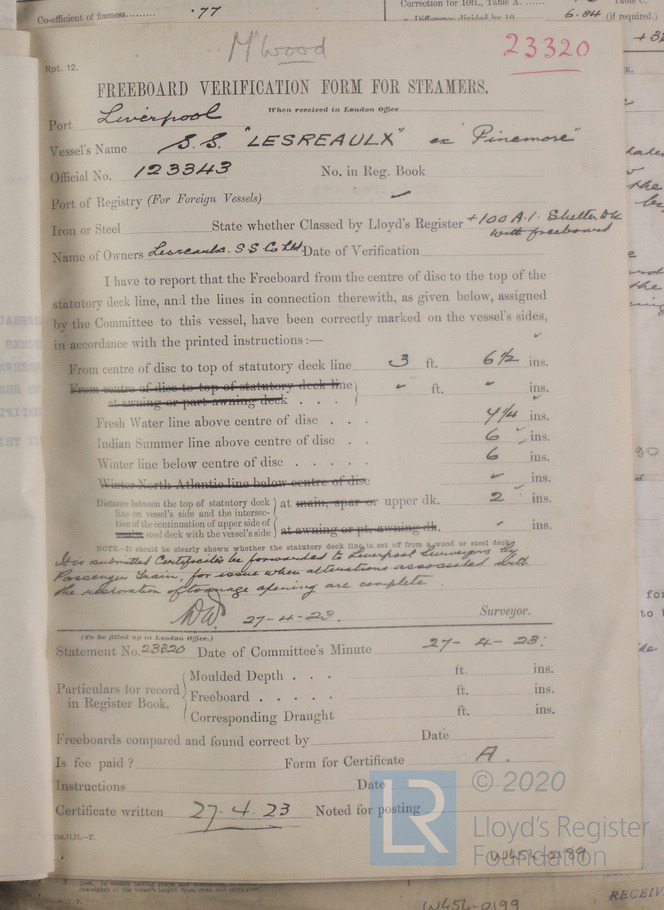 Co-efficient of fineness......... .77
Correction for 10ft., Table A. ......
÷ Difference divided by 10
6.84 (if required.)
+3
M'Wood
23320
Rpt. 12.
FREEBOARD VERIFICATION FORM FOR STEAMERS.
When received in London Office
Port Liverpool
Vessel's Name S.S. "LESREAULX" ex "Pinemore"
Official No. 123343 No. in Reg. Book
Port of Registry (For Foreign Vessels) ✓
Iron or Steel State whether Classed by Lloyd's Register +100 A.1. Shelter Dk
with freeboard
Name of Owners Lesreaulx. S S Co Ltd. Date of Verification
I have to report that the Freeboard from the centre of disc to the top of the
statutory deck line, and the lines in connection therewith, as given below, assigned
by the Committee to this vessel, have been correctly marked on the vessel's sides,
in accordance with the printed instructions:—
From centre of disc to top of statutory deck line 3 ft. 6½ ins.
From centre of disc to top of statutory deck line ft. ins.
at awning or part awning deck . . .
Fresh Water line above centre of disc . . . 4¼ ins.
Indian Summer line above centre of disc . . 6 ins.
Winter line below centre of disc . . . . . 6 ins.
Winter North Atlantic line below centre of disc ins.
Distance between the top of statutory deck
line on vessel's side and the intersec-
tion of the continuation of upper side of
steel deck with the vessel's side
at main, spar or upper dk. 2 ins.
at awning or pt. awning dk. ins.
NOTE.—It should be clearly shown whether the statutory deck line is set off from a wood or steel deck.
It is submitted Certificate be forwarded to Liverpool Surveyors by
Passenger Train, for issue when alterations associated with
the restoration of tonnage opening are complete.
27-4-23. Surveyor.
(To be filled up in London Office.)
Statement No. 23320 Date of Committee's Minute 27-4-23.
Particulars for record
in Register Book.
Moulded Depth . . . ft. ins.
Freeboard . . . . . ft. ins.
Corresponding Draught ft. ins.
Freeboards compared and found correct by Date
Is fee paid? Form for Certificate A.
Instructions Date
Certificate written 27.4.23 Noted for posting
LR
© 2020
Lloyd's Register
Foundation
W454-0199
W454-0199
RECEIV